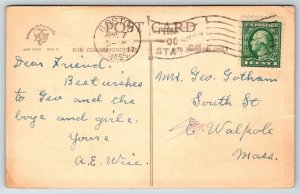 POST CARD
BOSTON
MASS.
NEW YORK BERLIN
FOR CORRESPONDENCE
Dear Friend.
Best wishes
to Geo and the
boys and girls.
Yours
A.E. Wise.
Mrs. Geo. Gotham
South St
E. Walpole
Mass.